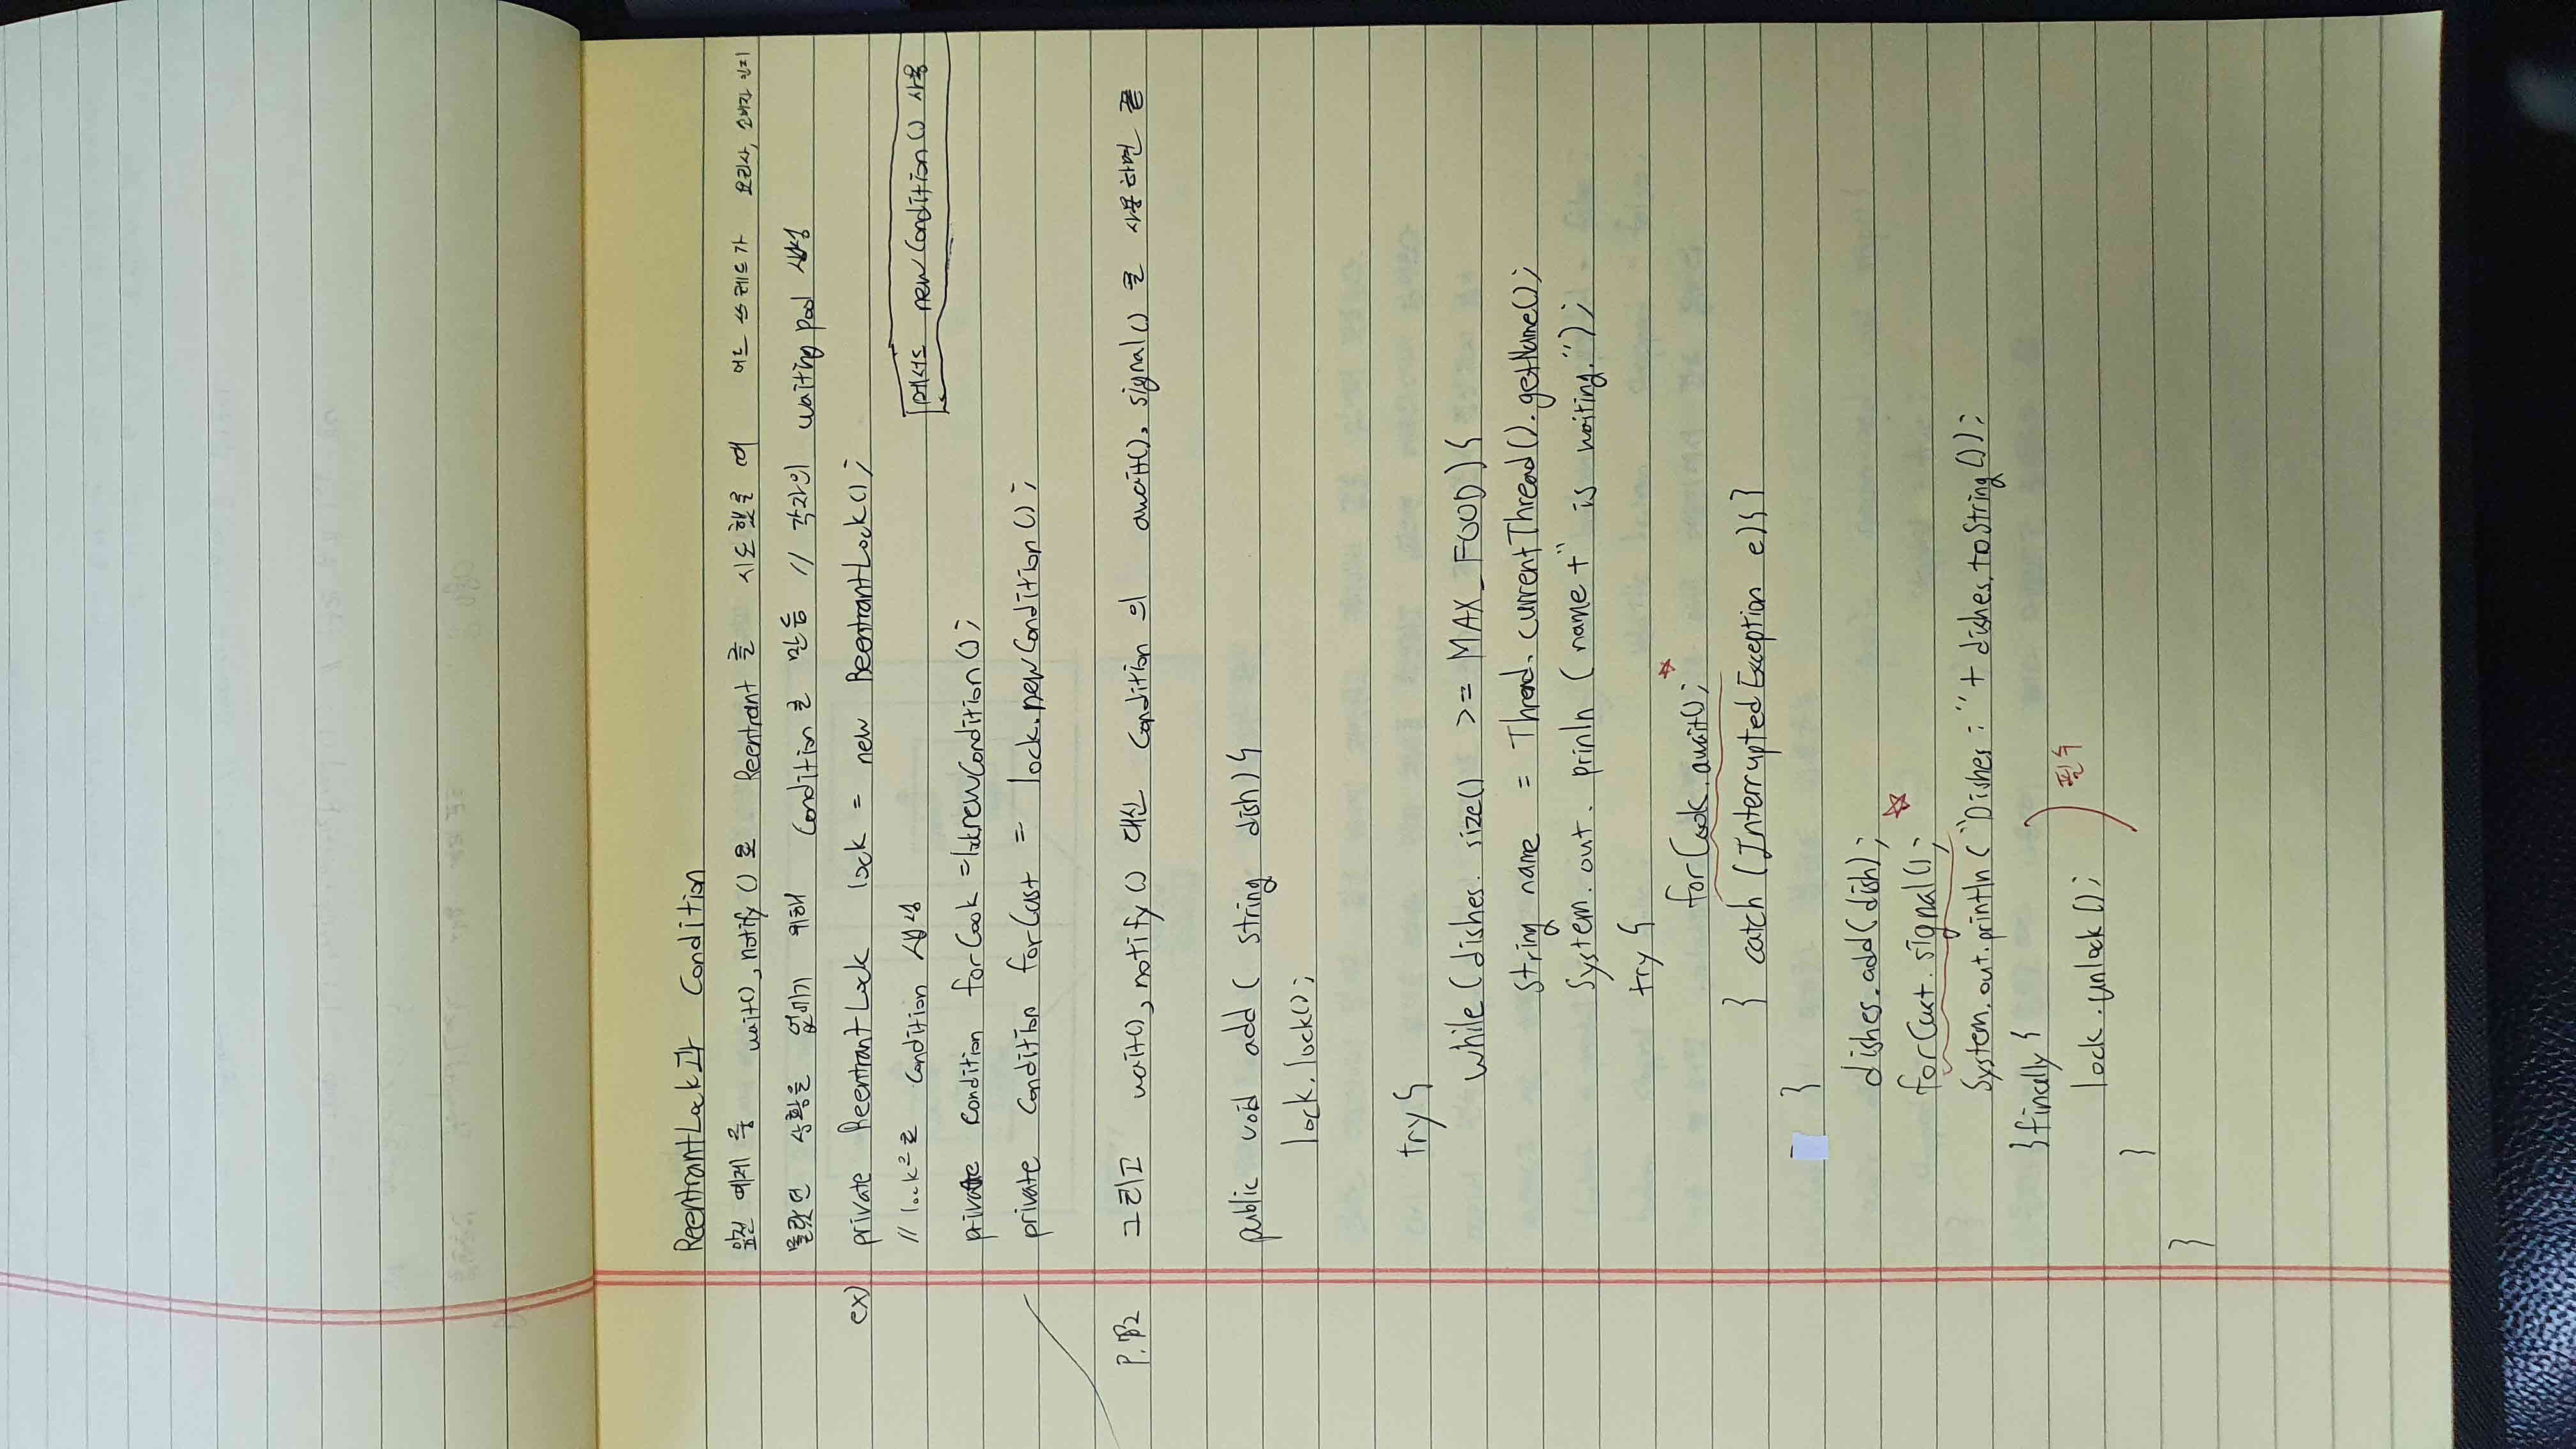 ReentrantLock과 Condition
앞전 예제 중 wait(), notify()로 Reentrant를 시도했을 때 어느 쓰레드가 요리사, 소비자인지
몰랐던 상황을 없애기 위해 Condition을 만듬 // 각자의 waiting pool 생성
ex) private ReentrantLock lock = new ReentrantLock();
// lock으로 Condition 생성
메서드 newCondition() 사용
private Condition forCook =lock.newCondition();
private Condition forCust = lock.newCondition();
그리고 wait(), notify() 대신 Condition의 await(), signal()를 사용하면 끝
public void add( string dish) {
lock.lock();
try {
while (dishes. size() >= MAX_FOOD) {
string name = Thread. currentThread().getName();
System. out. prinln (name+" is waiting.");
try {
forCook.await();
} catch (InterruptedException e) { }
}
dishes.add(dish);
forCust.signal();
System.out.println ("Dishes : "+ dishes.toString());
}finally {
lock.unlock();
필수
}
}